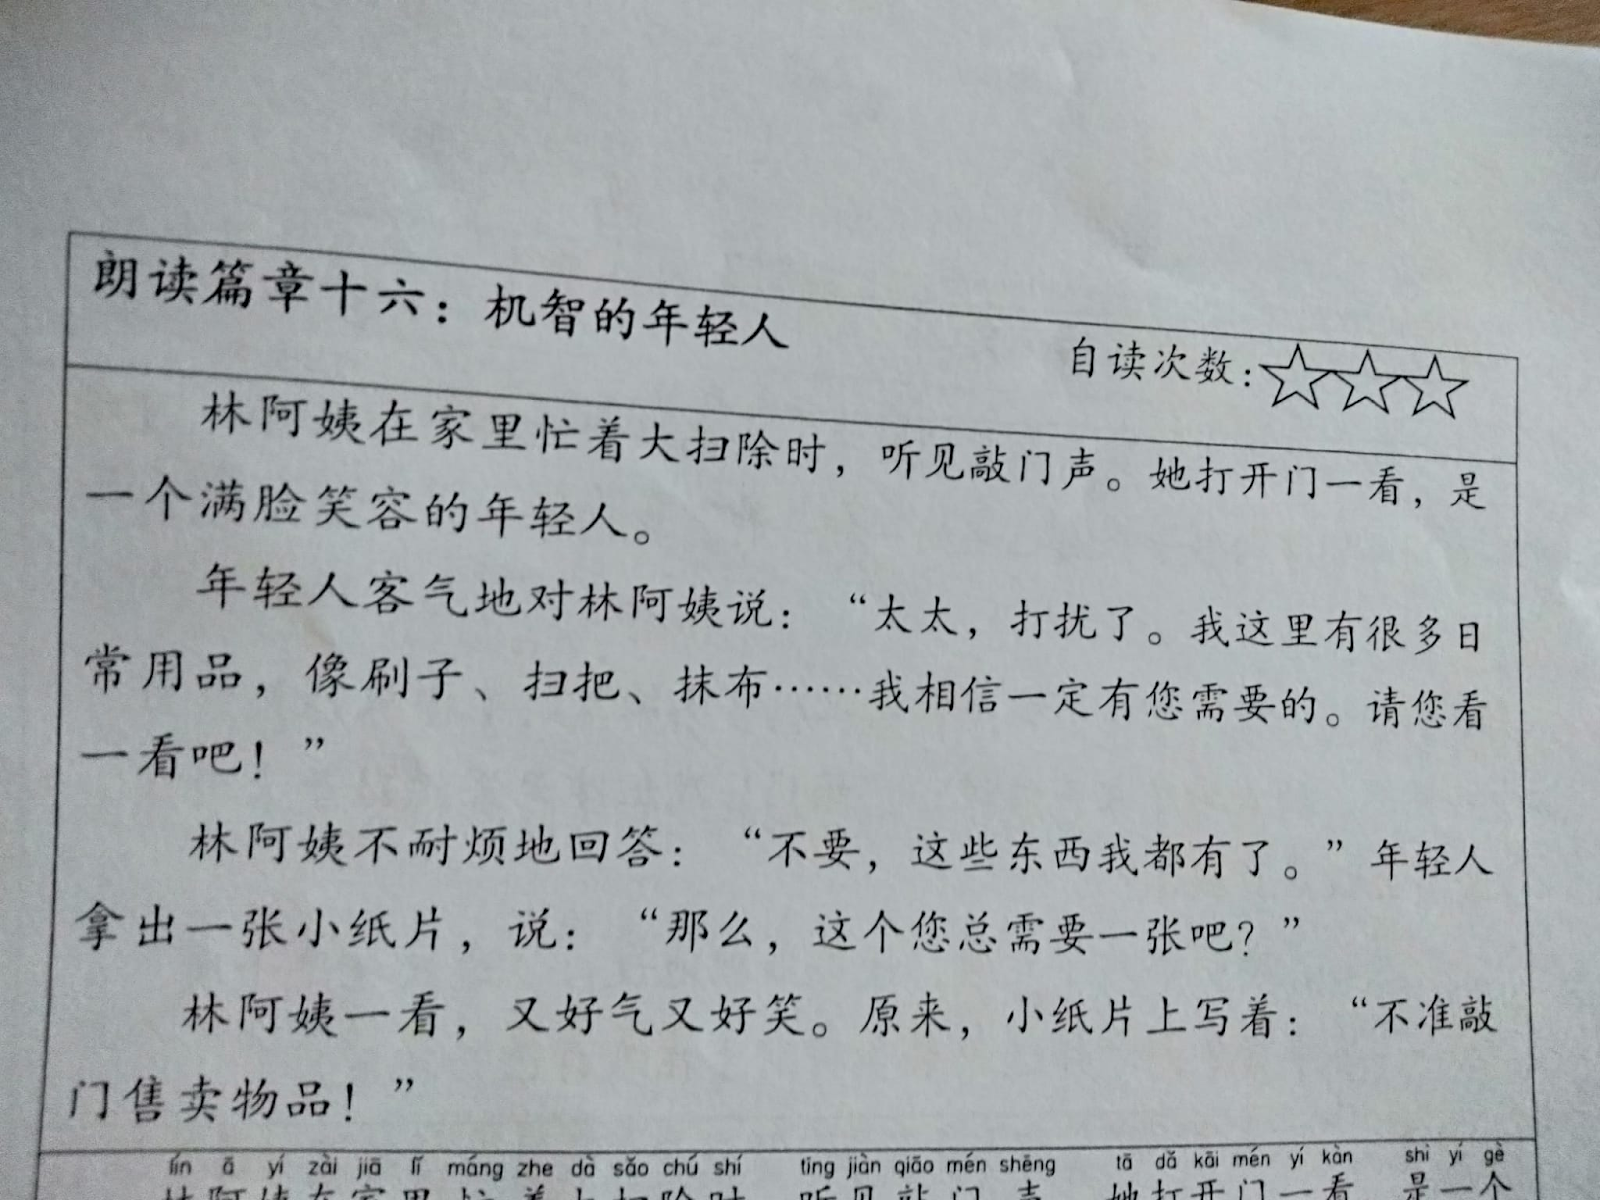 朗读篇章十六：机智的年轻人
自读次数：☆☆☆
林阿姨在家里忙着大扫除时，听见敲门声。她打开门一看，是
一个满脸笑容的年轻人。
年轻人客气地对林阿姨说：“太太，打扰了。我这里有很多日
常用品，像刷子、扫把、抹布……我相信一定有您需要的。请您看
一看吧！”
林阿姨不耐烦地回答：“不要，这些东西我都有了。”年轻人
拿出一张小纸片，说：“那么，这个您总需要一张吧？”
林阿姨一看，又好气又好笑。原来，小纸片上写着：“不准敲
门售卖物品！”
lín ā yí zài jiā lǐ máng zhe dà sǎo chú shí tīng jiàn qiāo mén shēng tā dǎ kāi mén yí kàn shì yí gè
林阿姨在家里忙着大扫除时 听见敲门声 她打开门一看 是一个